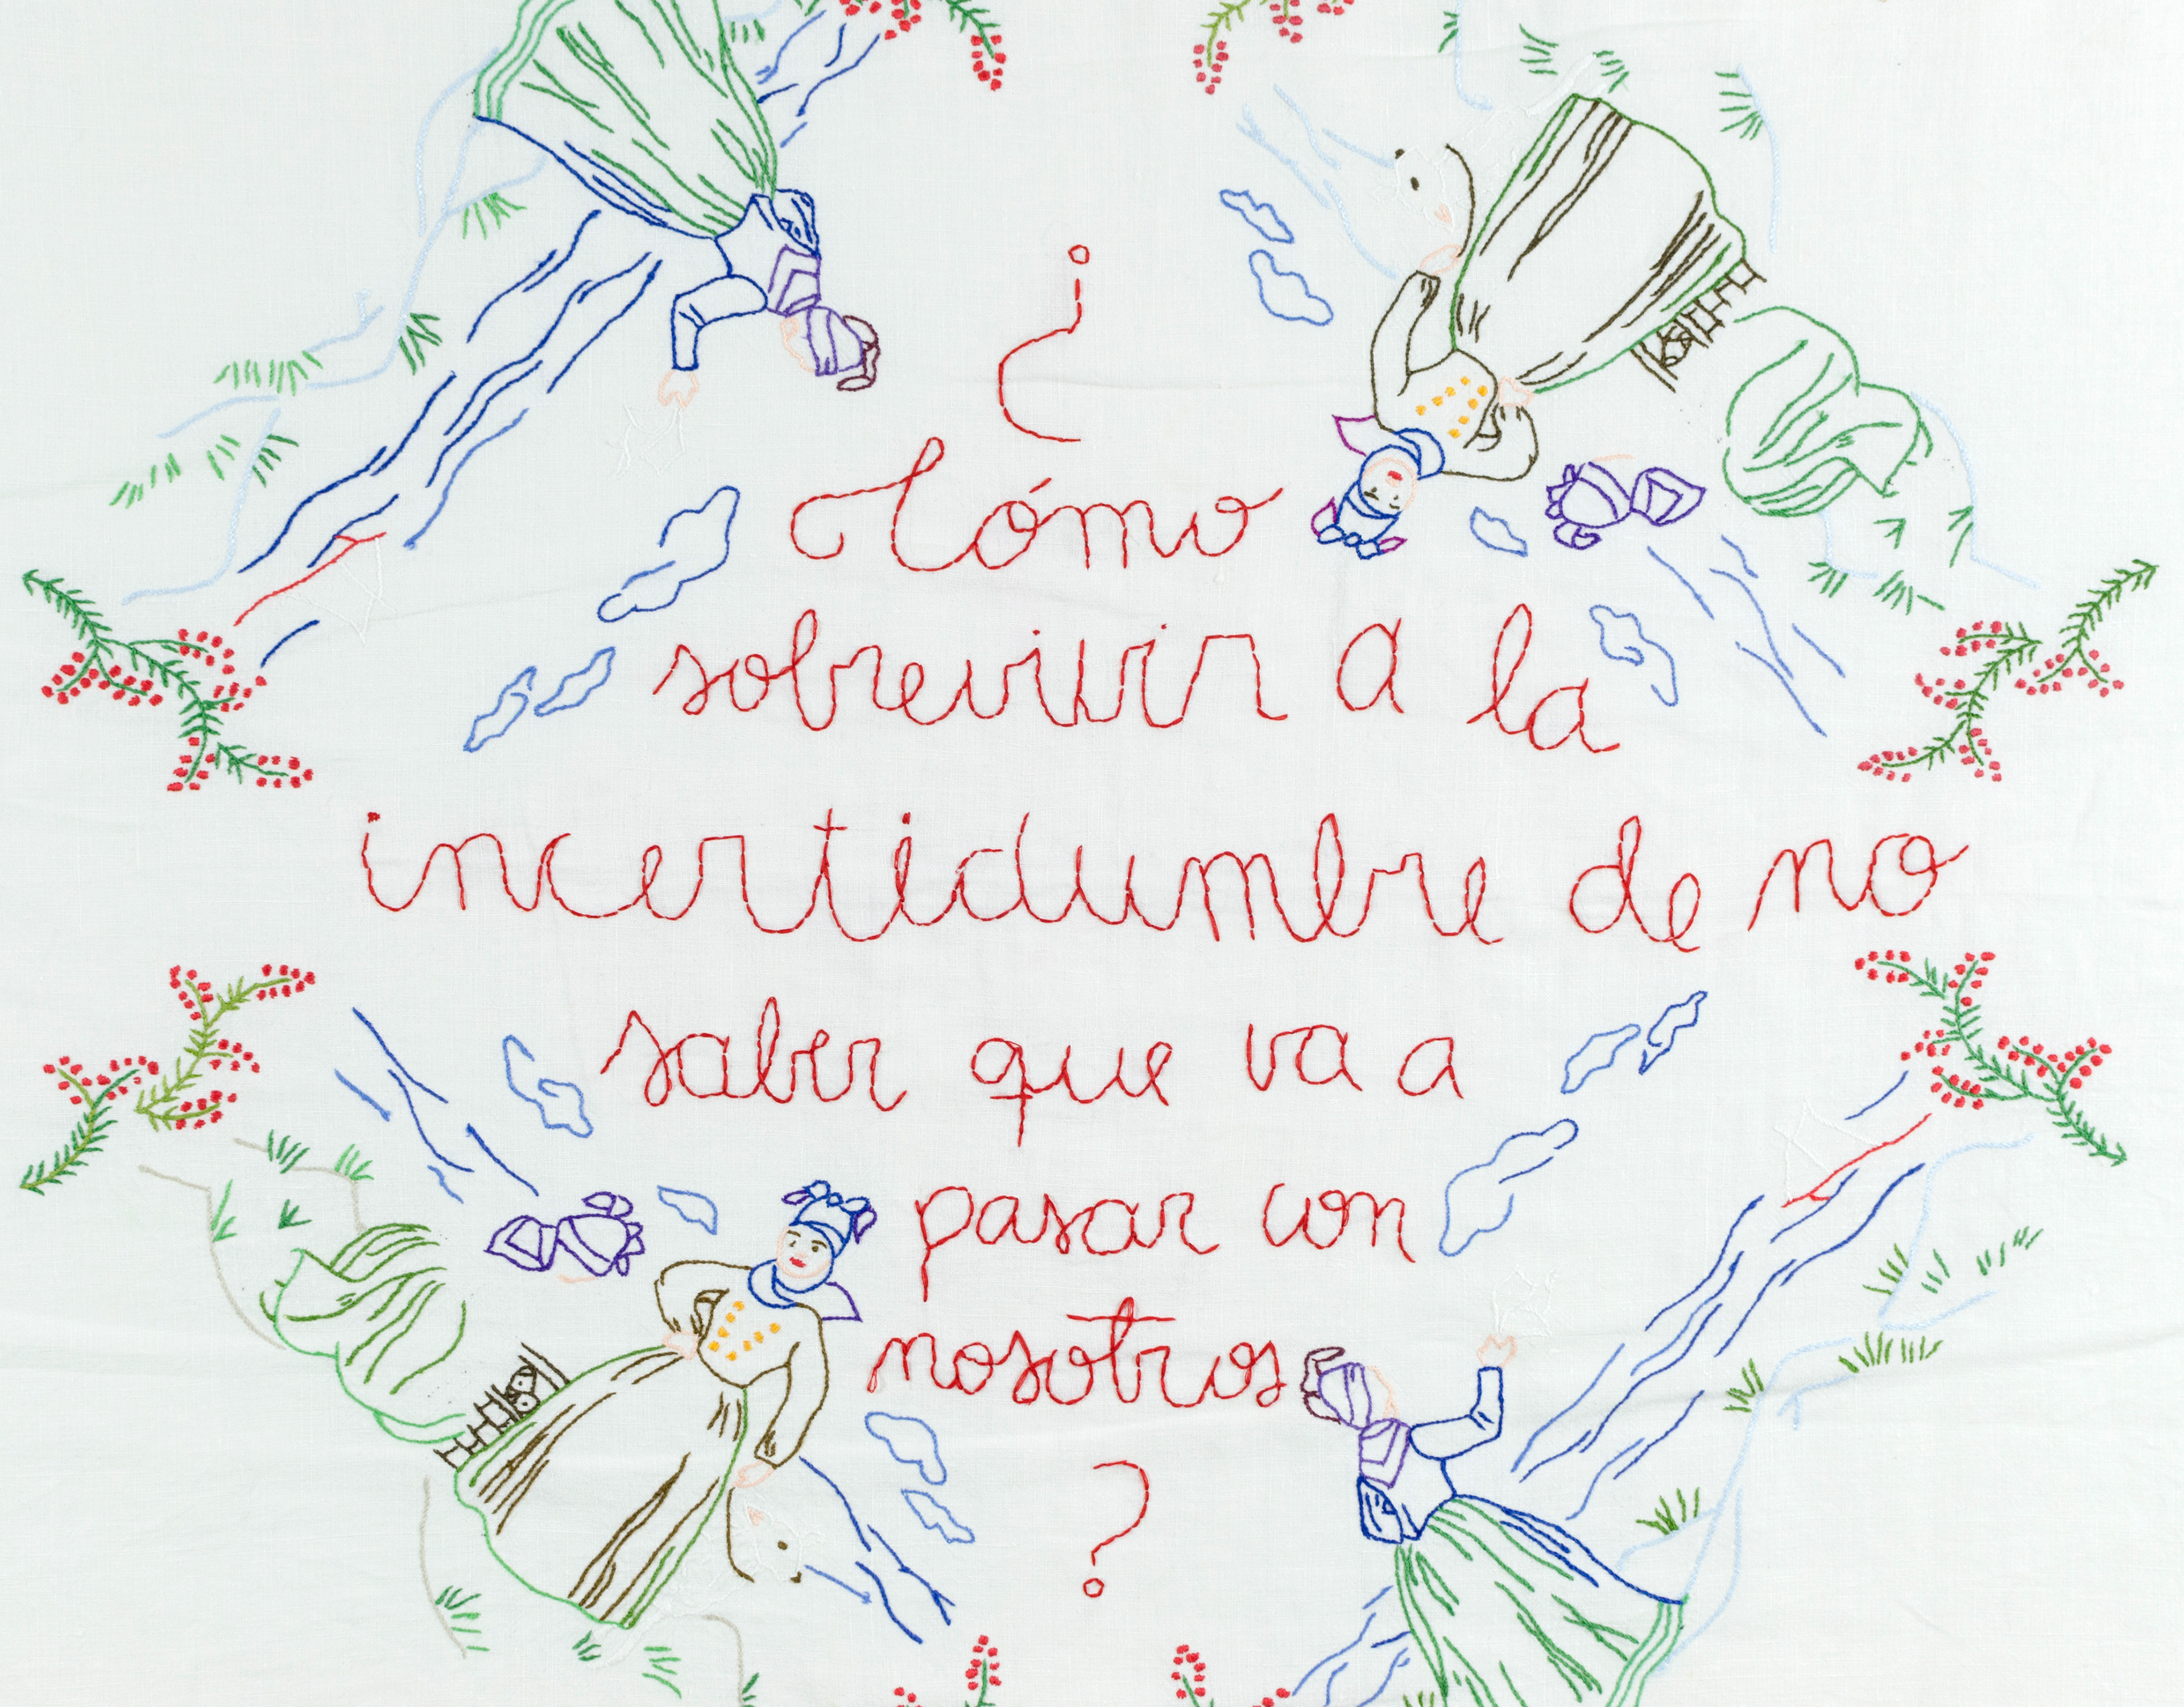 ¿
Cómo
sobrevivir a la
incertidumbre de no
saber que va a
pasar con
nosotros
?